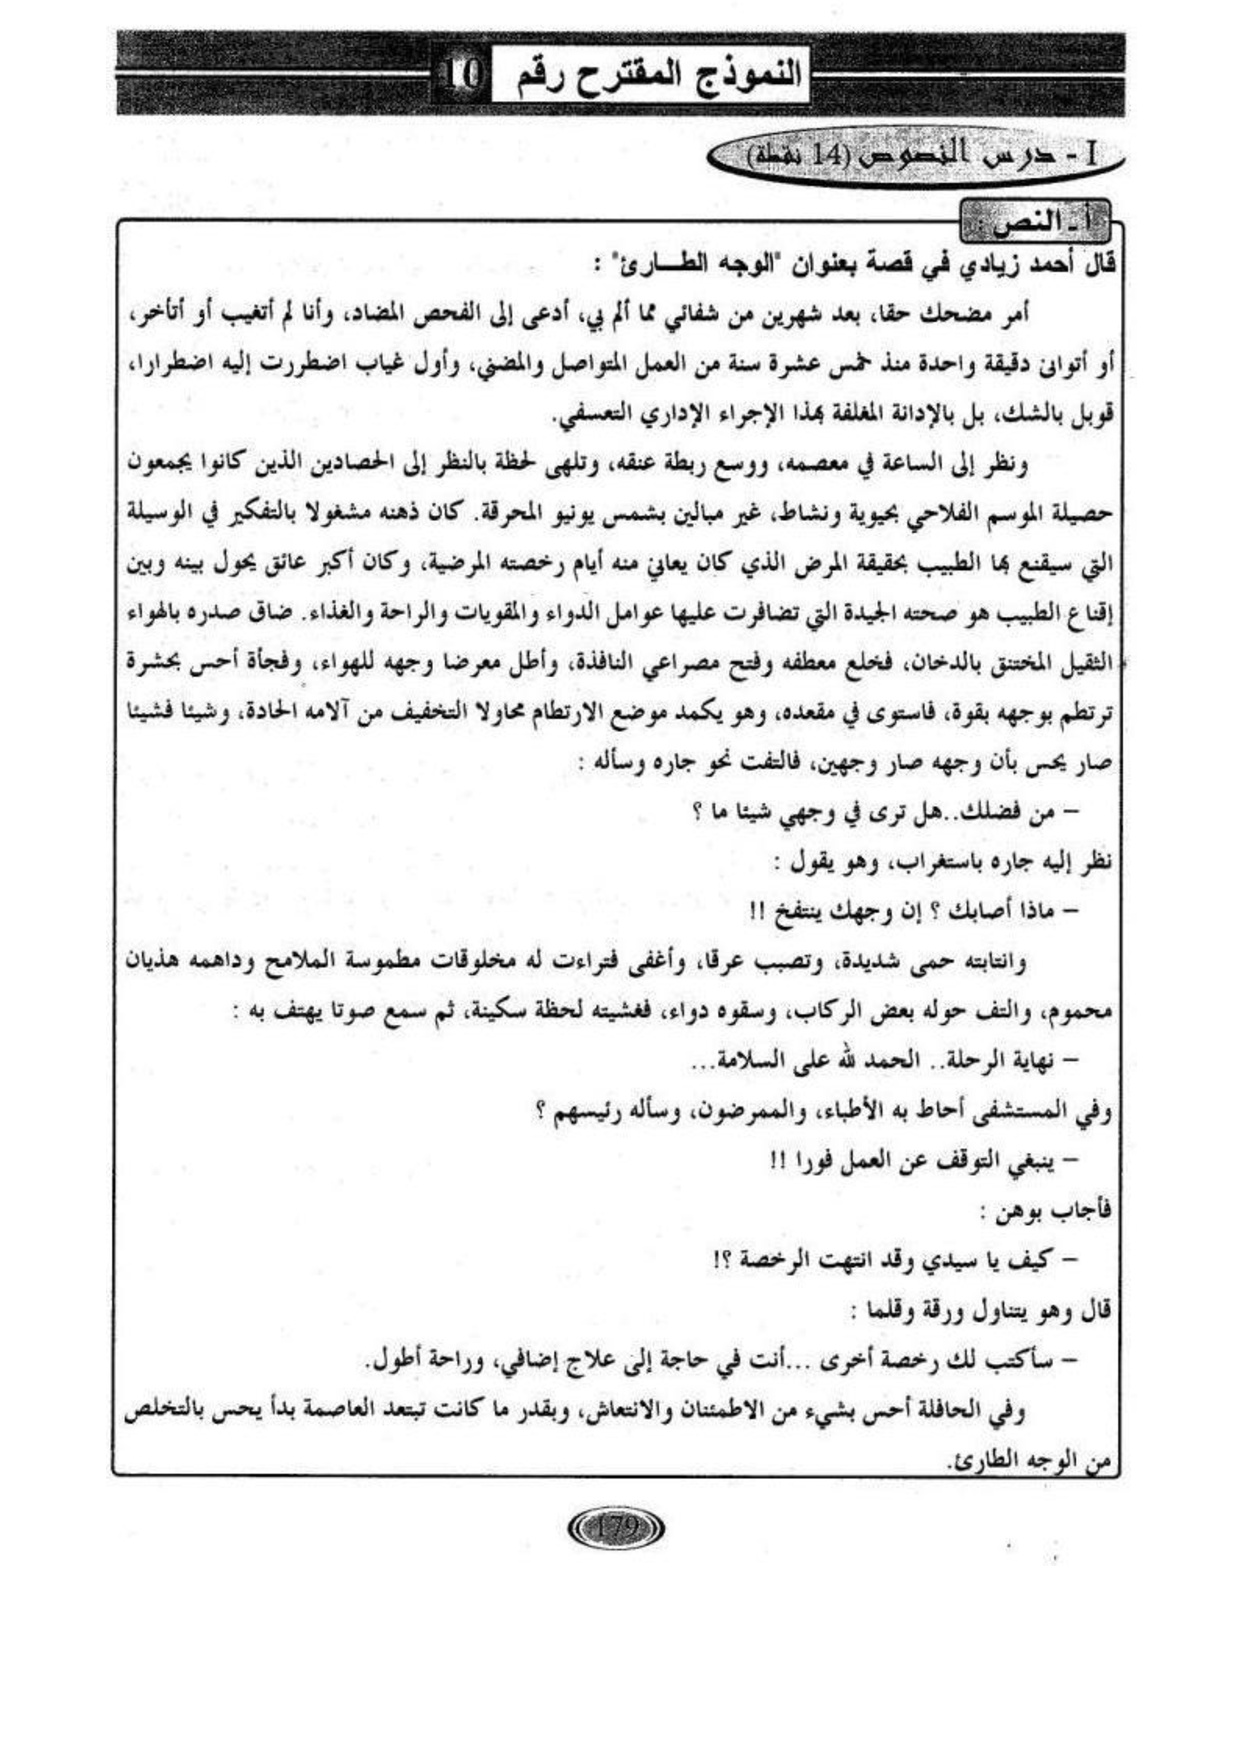 النموذج المقترح رقم 10
I - درس النصوص (14 نقطة)
أ ـ النص :
قال أحمد زيادي في قصة بعنوان "الوجه الطـــارئ" :
أمر مضحك حقا، بعد شهرين من شفائي مما ألم بي، أدعى إلى الفحص المضاد، وأنا لم أتغيب أو أتأخر،
أو أتوانى دقيقة واحدة منذ خمس عشرة سنة من العمل المتواصل والمضني، وأول غياب اضطررت إليه اضطرارا،
قوبل بالشك، بل بالإدانة المغلفة بهذا الإجراء الإداري التعسفي.
ونظر إلى الساعة في معصمه، ووسع ربطة عنقه، وتلهى لحظة بالنظر إلى الحصادين الذين كانوا يجمعون
حصيلة الموسم الفلاحي بحيوية ونشاط، غير مبالين بشمس يونيو المحرقة. كان ذهنه مشغولا بالتفكير في الوسيلة
التي سيقنع بها الطبيب بحقيقة المرض الذي كان يعاني منه أيام رخصته المرضية، وكان أكبر عائق يحول بينه وبين
إقناع الطبيب هو صحته الجيدة التي تضافرت عليها عوامل الدواء والمقويات والراحة والغذاء. ضاق صدره بالهواء
الثقيل المختنق بالدخان، فخلع معطفه وفتح مصراعي النافذة، وأطل معرضا وجهه للهواء، وفجأة أحس بحشرة
ترتطم بوجهه بقوة، فاستوى في مقعده، وهو يكمد موضع الارتطام محاولا التخفيف من آلامه الحادة، وشيئا فشيئا
صار يحس بأن وجهه صار وجهين، فالتفت نحو جاره وسأله :
– من فضلك..هل ترى في وجهي شيئا ما ؟
نظر إليه جاره باستغراب، وهو يقول :
– ماذا أصابك ؟ إن وجهك ينتفخ !!
وانتابته حمى شديدة، وتصبب عرقا، وأغفى فتراءت له مخلوقات مطموسة الملامح وداهمه هذيان
محموم، والتف حوله بعض الركاب، وسقوه دواء، فغشيته لحظة سكينة، ثم سمع صوتا يهتف به :
– نهاية الرحلة.. الحمد لله على السلامة...
وفي المستشفى أحاط به الأطباء، والممرضون، وسأله رئيسهم ؟
– ينبغي التوقف عن العمل فورا !!
فأجاب بوهن :
– كيف يا سيدي وقد انتهت الرخصة ؟!
قال وهو يتناول ورقة وقلما :
– سأكتب لك رخصة أخرى ...أنت في حاجة إلى علاج إضافي، وراحة أطول.
وفي الحافلة أحس بشيء من الاطمئنان والانتعاش، وبقدر ما كانت تبتعد العاصمة بدأ يحس بالتخلص
من الوجه الطارئ.
179